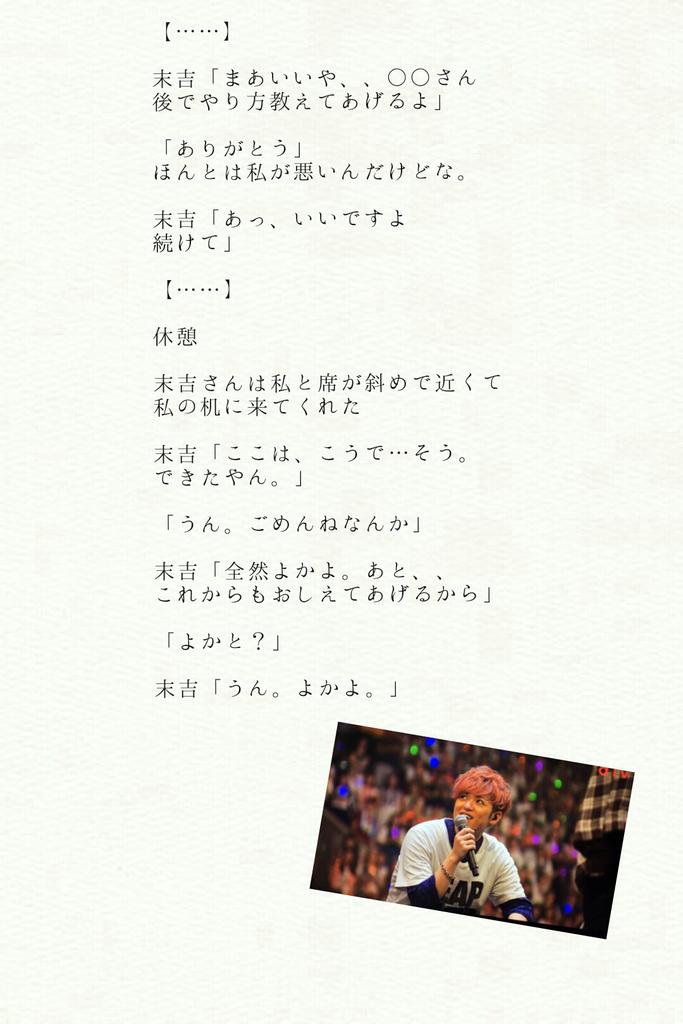 【……】
末吉「まあいいや、、〇〇さん
後でやり方教えてあげるよ」
「ありがとう」
ほんとは私が悪いんだけどな。
末吉「あっ、いいですよ
続けて」
【……】
休憩
末吉さんは私と席が斜めで近くて
私の机に来てくれた
末吉「ここは、こうで…そう。
できたやん。」
「うん。ごめんねなんか」
末吉「全然よかよ。あと、、
これからもおしえてあげるから」
「よかと？」
末吉「うん。よかよ。」